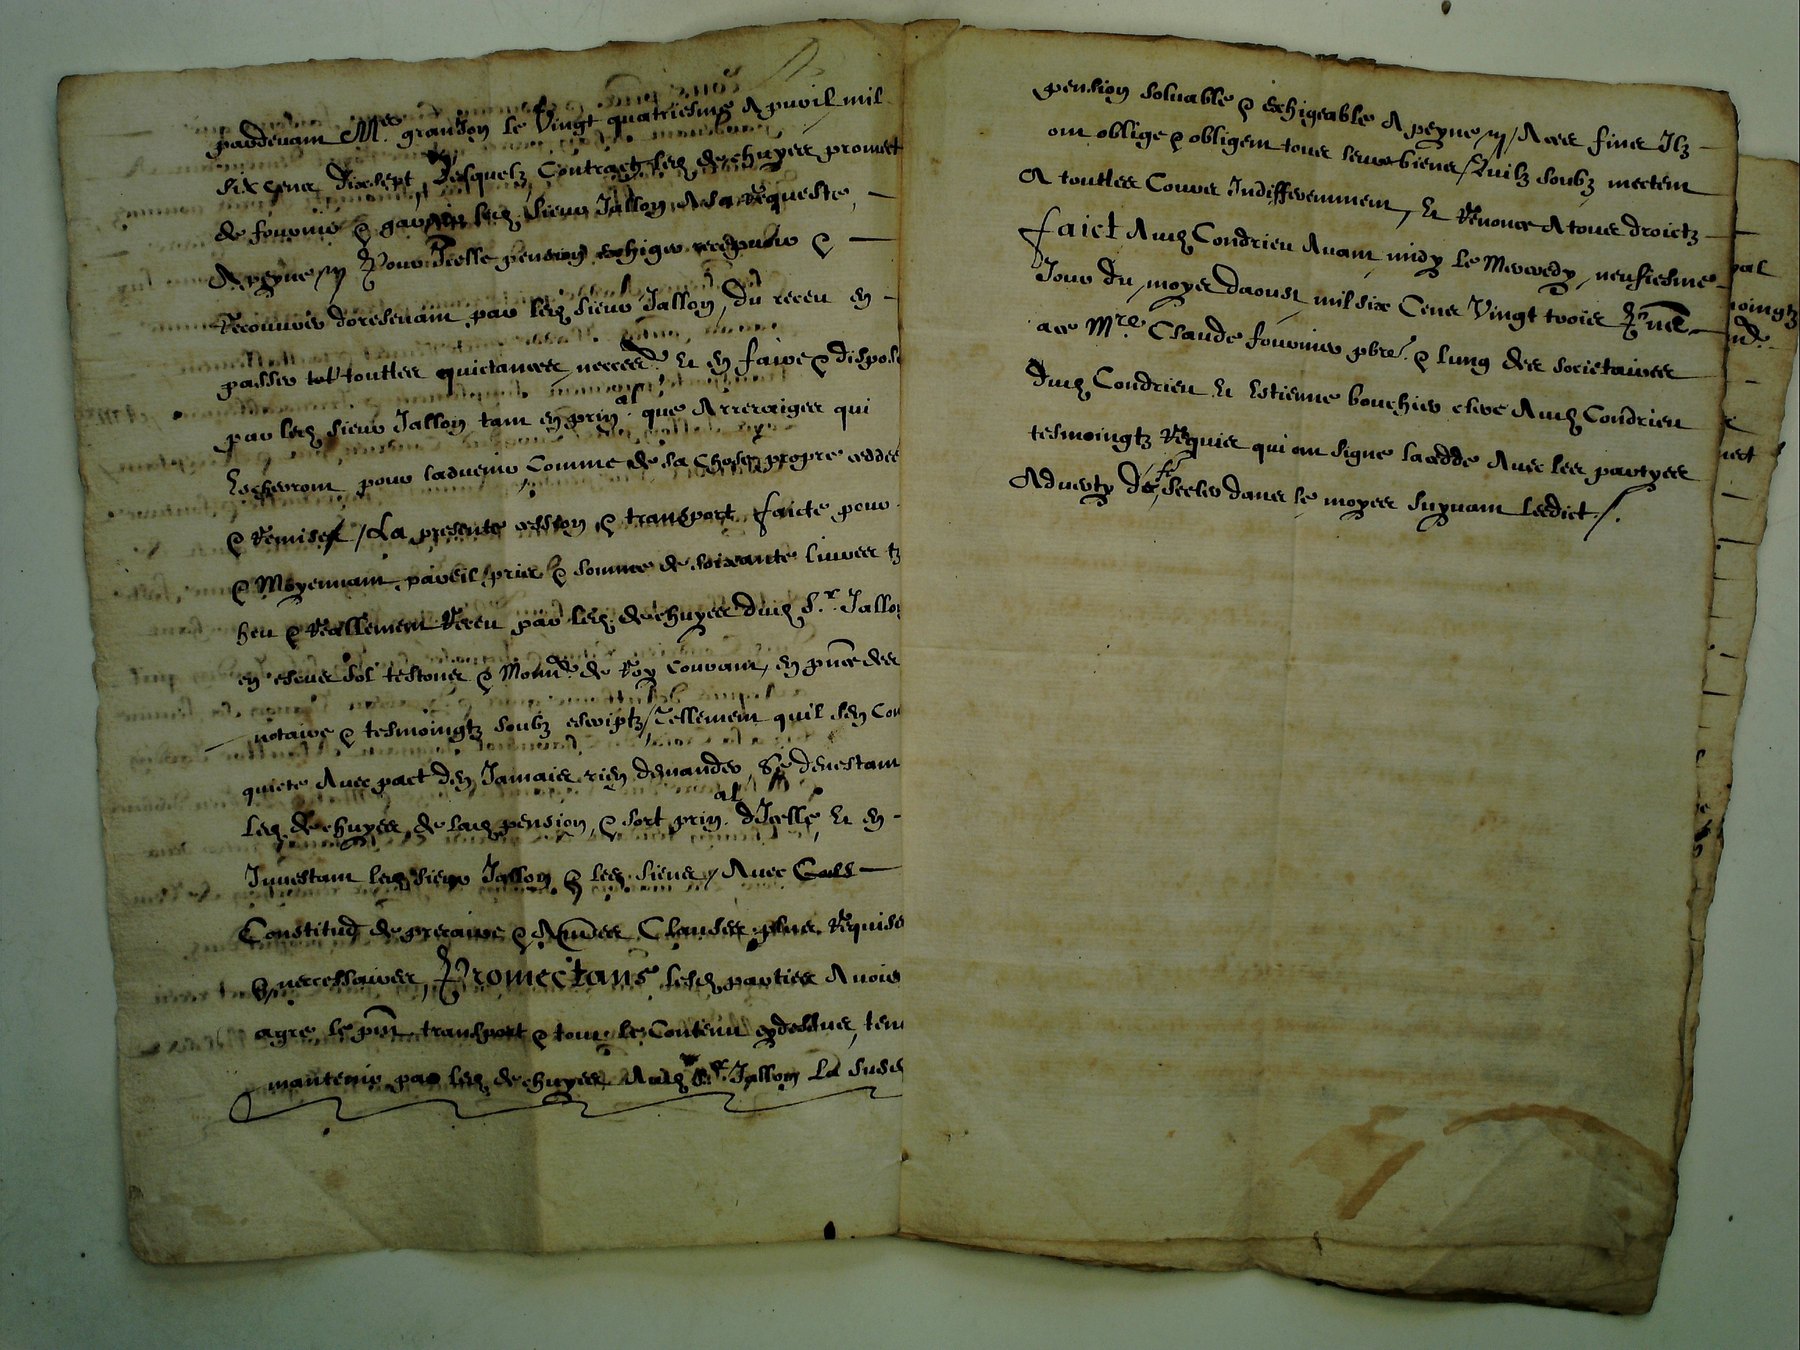 pardevam Mes granjon le Vingt quatriesme Apvril mil
six cens dixsept, Desquelz Contractz led. dechuyes promect
de fournir & garnir led. sieur Jallon A sa Requeste, —
A peyne /// Pour Icelle pension exhiger recepvoir & —
Recouvrer doresenam par led. sieur Jallon, du receu en -
passer touttes quictances necessres Et en faire & dispose
par led. sieur Jallon tam en prinal que Arreraiges qui
Escherrom pour ladvenir Comme de sa Chose propre ceddee
& Remise / La presente cession & transport faicte pour
& Moyennam pareil pris & somme de soixante livres tz
heu & Reallement Receu par led. dechuyes dud. Sr. Jallon
en escus sol testons & Monn de Roy Couram, en pnce des
notaire & tesmoingtz soubz escriptz, Tellement quil sen Con
quicte Avec pact den Jamais rien demander, Se devestam
led. dechuyes de lad. pension, & sort prinal dIcelle Et en -
Investam led. sieur Jallon & les siens / Avec
Constitud de precaire & Aultres Clauses plus Requise
& necessaires, Promectans lesd. parties Avoir
agre le pnt transport & tout le Contenu cydessus, ten
mantenir par led. dechuyes Aud. Sr. Jallon La susd
pension solvable & exhigeable A peyne /// A ces fins Ilz -
om oblige & obligent tous leurs biens / Quilz soubz mectent
A touttes Cours Indifferemment, Et Renonce A tous droictz -
faict Aud. Condrieu Avam midy le Mercredy, neufiesme -
Jour du moys daoust mil six Cens Vingt trois Pns
ace Mre Claude fournier pbre. & lung des societaires
dud. Condrieu Et Estienne bouchier clerc Aud. Condrieu
tesmoingtz Requis qui om signe la cedde Avec les partyes
Adverty de fe Seeler dans le moyes suyvam Leedict /.
pal
oingtz